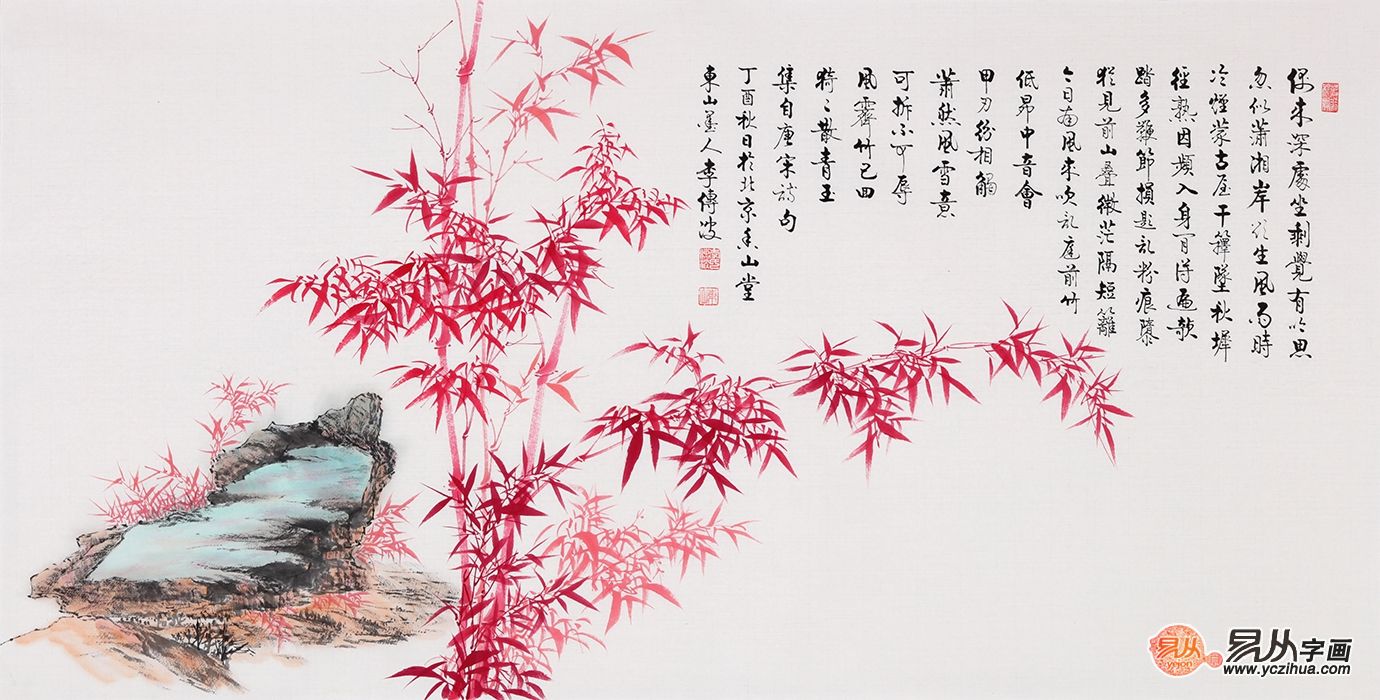 偶来深處坐剩覺有吟思
忽似瀟湘岸欲生風雨時
冷煙蒙古屋干籜墜秋墀
徑熟因頻入身闲得遍欹
踏多鞭節損題乱粉痕隳
猶見前山叠微茫隔短籬
今日南風来吹乱庭前竹
低昂中音會
甲刃紛相觸
蕭然風雪意
可折不可辱
風霽竹已回
猗々散青玉
集自唐宋詩句
丁酉秋日於北京香山堂
東山墨人李傳波
易从
易从字画
www.yczihua.com